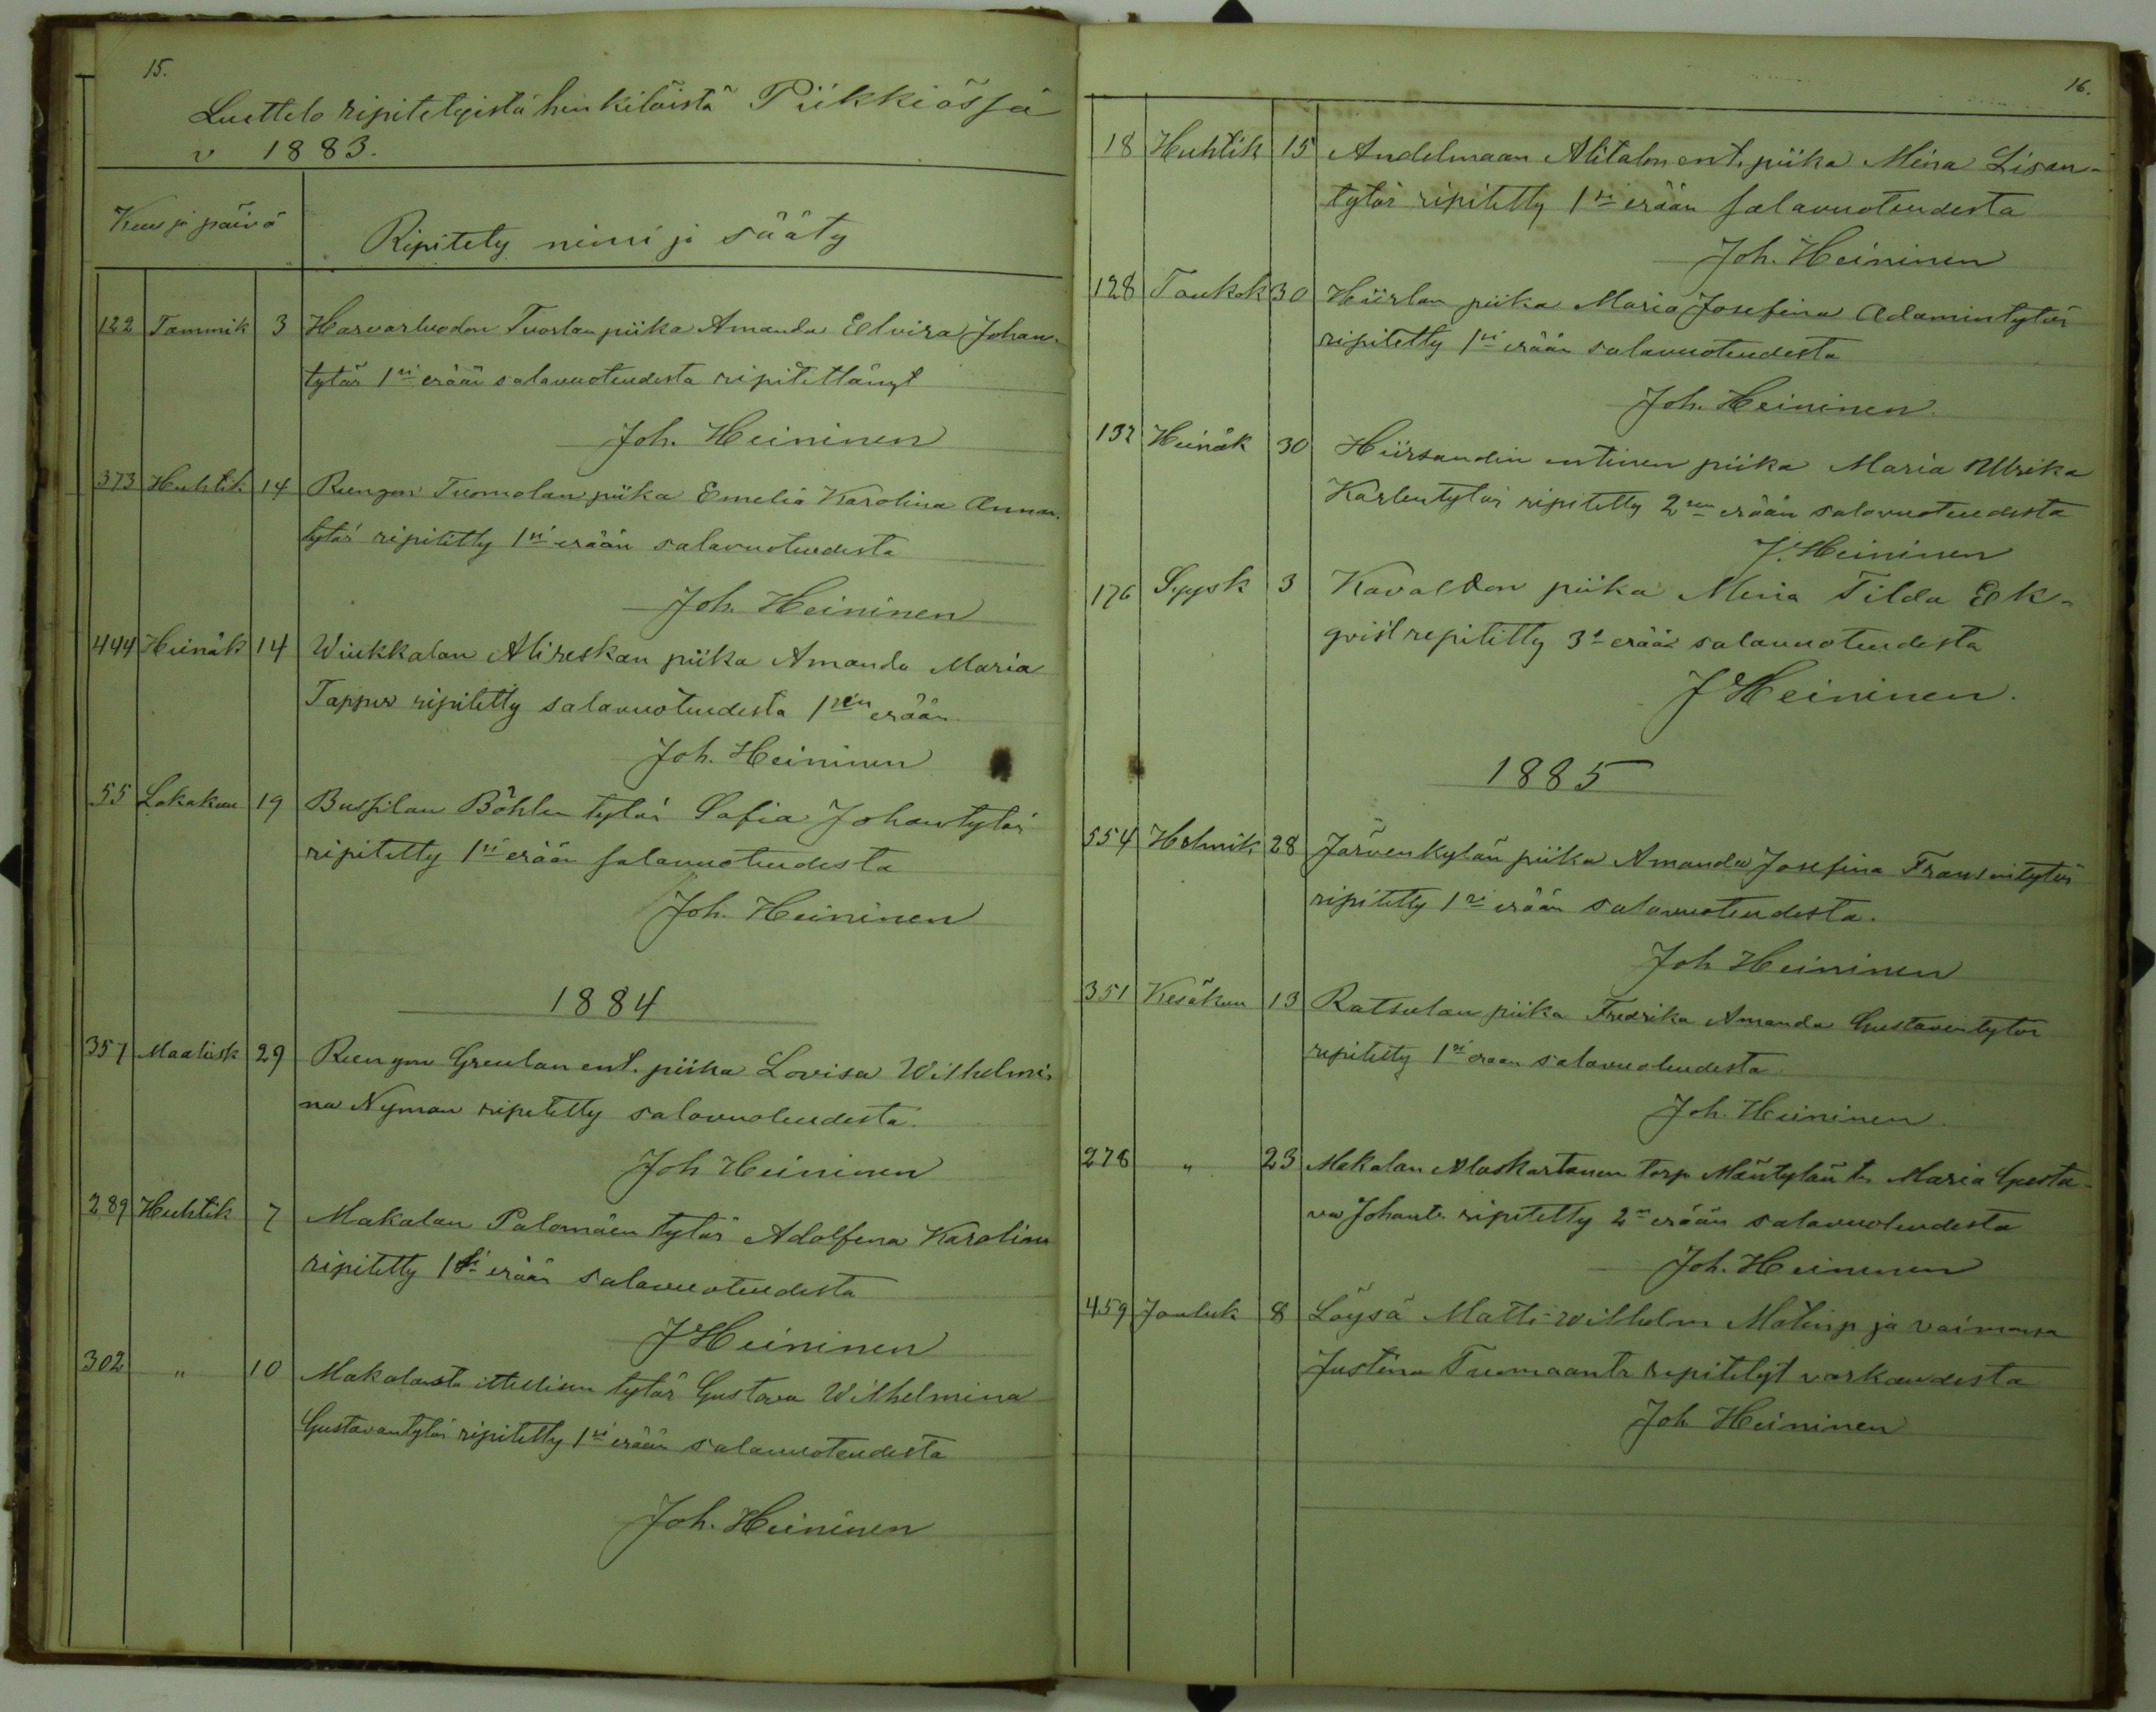 15.
Luettelo ripitetyistä henkilöistä Piikkiössä
v 1883.
Kuu ja päivä
Ripitety nimi ja sääty
122 Tammik 3 Harvarluodon Tuorlan piika Amanda Elvira Johan-
tytär 1si erään salavuoteudesta ripitettänyt
Joh. Heininen
373 Huhtik 14 Rungon Tuomolan piika Emelia Karolina Annan-
tytär ripitetty 1si erään salavuoteudesta
Joh. Heininen
444 Heinäk 14 Wiukkalan Alireskan piika Amanda Maria
Tapper ripitetty salavuoteudesta 1sen erään
Joh. Heininen
55 Lokakuu 19 Bussilan Böhlen tytär Sofia Johantytär
ripitetty 1si erään salavuoteudesta
Joh. Heininen
1884
357 Maalisk 29 Rungon Greulan ent. piika Lovisa Wilhelmi-
na Nyman ripitetty salavuoteudesta.
Joh Heininen
289 Huhtik 7 Makalan Palomäen tytär Adolfina Karolina
ripitetty 1si erään salavuoteudesta
J Heininen
302 " 10 Makalasta ittellisen tytär Gustava Wilhelmina
Gustavantytär ripitetty 1si erään salavuoteudesta
Joh. Heininen
16.
18 Huhtik 15 Andelmaan Alitalon ent. piika Miina Lisan-
tytär ripitetty 1si erään salavuoteudesta
Joh. Heininen
128 Toukok 30 Hiirlan piika Maria Josefina Adamintytär
ripitetty 1si erään salavuoteudesta
Joh. Heininen
132 Heinäk 30 Hiirsandin entinen piika Maria Ulrika
Karlentytär ripitetty 2sen erään salavuoteudesta
J. Heininen
176 Syysk 3 Kavalton piika Miina Tilda Ek-
qvist repitetty 3s erään salavuoteudesta
J Heininen.
1885
554 Helmik 28 Järvenkylän piika Amanda Josefina Fransintytär
ripitetty 1si erään salavuoteudesta.
Joh Heininen
351 Kesäkuu 13 Ratsulan piika Fredrika Amanda Gustaventytär
ripitetty 1si erään salavuoteudesta
Joh. Heininen.
278 " 23 Makalan Alaskartanon torp Mäntylän tr Maria Gusta-
va Johantr ripitetty 2n erään salavuoteudesta
Joh. Heininen
459 Jouluk 8 Löysä Matti Wilhelm Matinp ja vaimonsa
Justina Tuomaantr repitetyt varkaudesta
Joh Heininen